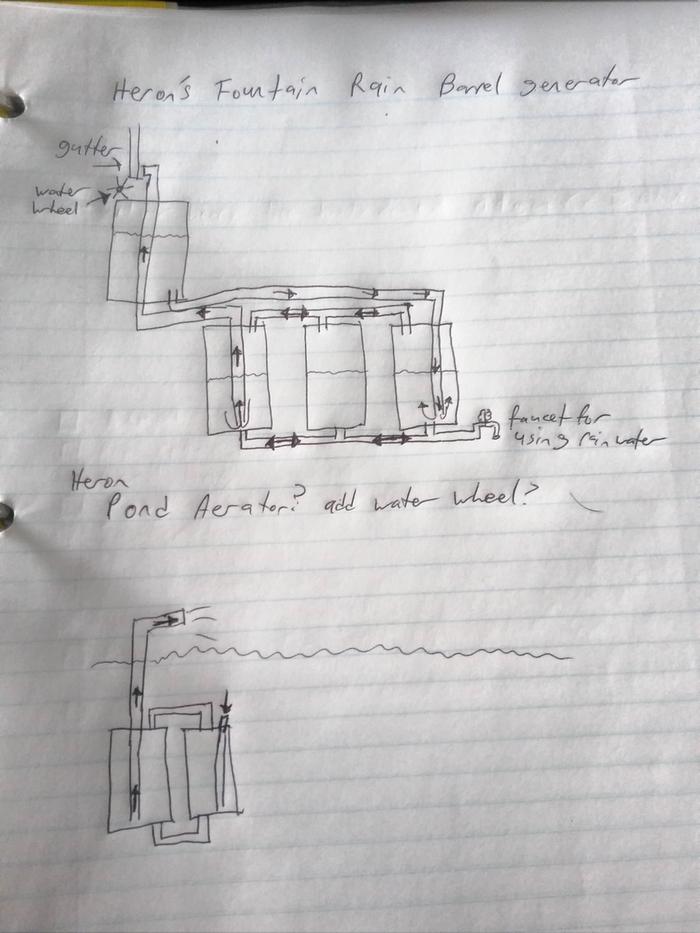 Heron's Fountain Rain Barrel generator
gutter
water
wheel
faucet for
using rain water
Heron
Pond Aerator? add water wheel?